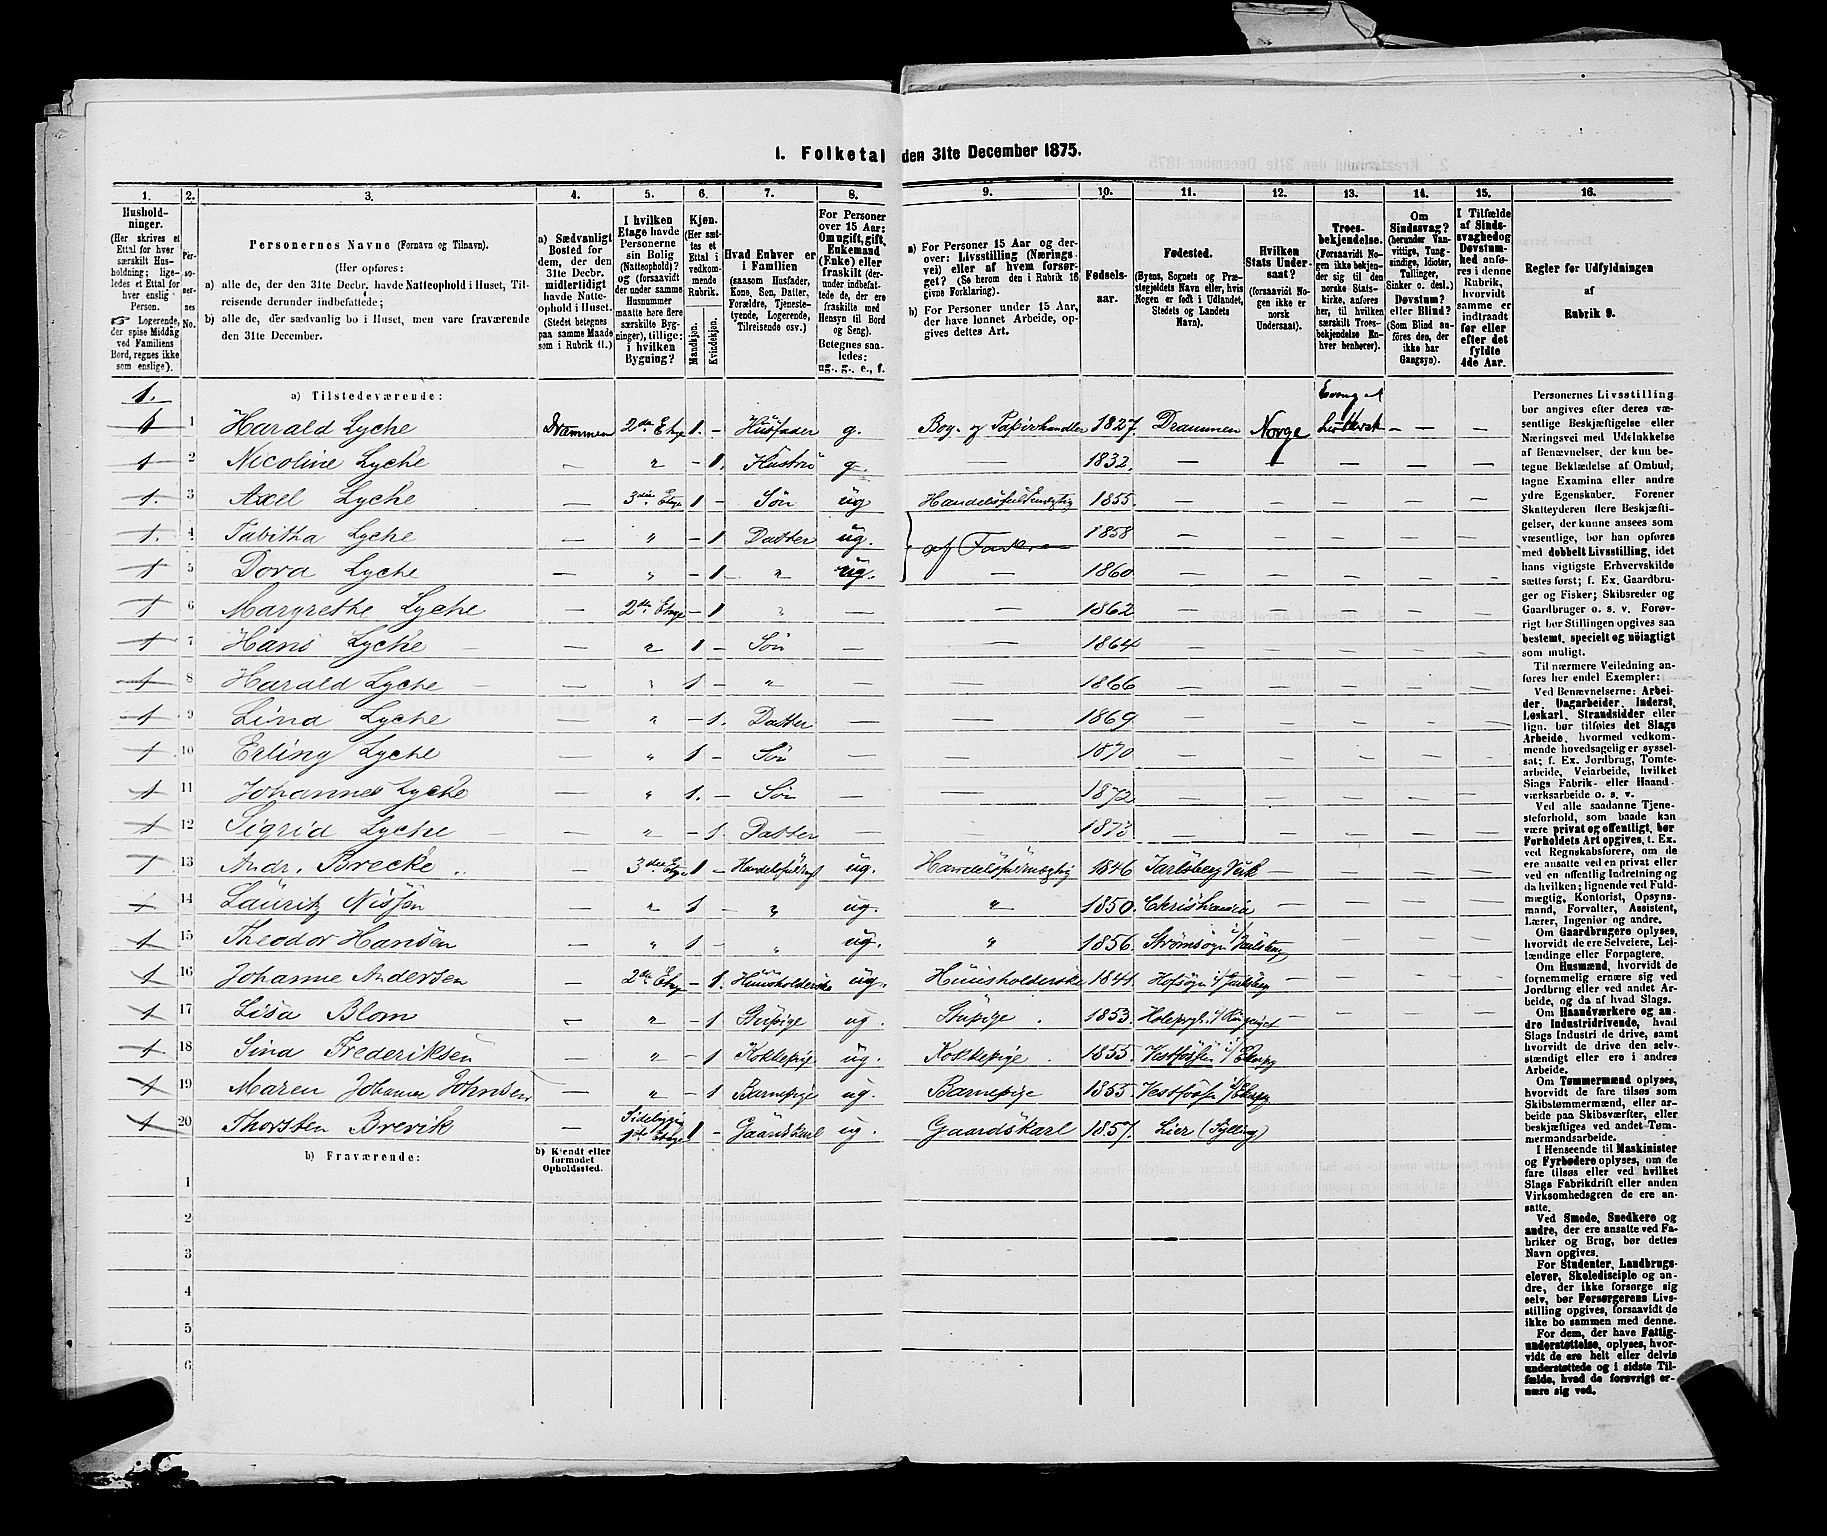 1. Folketal den 31te December 1875.
1. 2. 3. 4. 5. 6. 7. 8. 9. 10. 11. 12. 13. 14. 15. 16.
Husholdninger. (Her skrives et Ettal for hver særskilt Husholdning; ligeledes et Ettal for hver enslig Person. Logerende, der spise Middag ved Familiens Bord, regnes ikke som enslige).
Personernes No.
Personernes Navne (Fornavn og Tilnavn).
(Her opføres:
a) alle de, der den 31te Decbr. havde Natteophold i Huset, Tilreisende derunder indbefattede;
b) alle de, der sædvanlig bo i Huset, men vare fraværende den 31te December.
a) Sædvanligt Bosted for dem, der den 31te Decbr. midlertidigt havde Natteophold i Huset. (Stedet betegnes paa samme Maade som i Rubrik 11.)
I hvilken Etage havde Personerne sin Bolig (Natteophold)? og (forsaavidt der under samme Husnummer maatte høre flere særskilte Bygninger), tillige: i hvilken Bygning?
Kjøn. (Her sættes et Ettal i vedkommende Rubrik.
Mandkjøn. Kvindekjøn.
Hvad Enhver er i Familien (saasom Husfader, Kone, Søn, Datter, Forældre, Tjenestetyende, Logerende, Tilreisende osv.)
For Personer over 15 Aar: Om ugift, gift, Enkemand (Enke) eller fraskilt (derunder indbefattede de, der ere fraskilte med Hensyn til Bord og Seng). Betegnes saaledes: ug., g., e., f.
a) For Personer 15 Aar og derover: Livsstilling (Næringsvei) eller af hvem forsørget? (Se herom den i Rubrik 16 givne Forklaring).
b) For Personer under 15 Aar, der have lønnet Arbeide, opgives dettes Art.
Fødselsaar.
Fødested. (Byens, Sognets og Præstegjeldets Navn eller, hvis Nogen er født i Udlandet, Stedets og Landets Navn).
Hvilken Stats Undersaat? (forsaavidt Nogen ikke er norsk Undersaat).
Troesbekjendelse. (Forsaavidt Nogen ikke bekjender sig til den norske Statskirke, anføres her, til hvilken særskilt Troesbekjendelse Enhver henhører).
Om Sindssvag? (herunder Vanvittige, Tungsindige, Idioter, Tullinger, Sinker o. desl.) Døvstum? eller Blind? (Som Blind anføres den, der ikke har Gangsyn).
I Tilfælde af Sindssvaghed og Døvstumhed anføres i denne Rubrik, hvorvidt samme er indtraadt før eller efter det fyldte 4de Aar.
Regler for Udfyldningen af Rubrik 9.
1. a) Tilstedeværende: Evangel
1 1 Harald Lyche Drammen 2den Etage 1. – Husfader g. Bog- og Papirhandler 1827. Drammen Norge Luthersk — —
1 2 Nicoline Lyche — " – 1. Hustru g. — 1832. — — — — —
1. 3 Axel Lyche — 3die Etage 1 – Søn ug Handelsfuldmægtig 1855. — — — — —
1. 4 Tabitha Lyche — " – 1 Datter ug. af Faderen 1858 — — — — —
1 5 Dora Lyche — " – 1 " ug. — 1860 — — — — —
1 6 Margrethe Lyche — 2den Etage – 1 " — — 1862 — — — — —
1 7 Hans Lyche — " 1 – Søn — — 1864 — — — — —
1 8 Harald Lyche — " 1 – " — — 1866 — — — — —
1 9 Lina Lyche — " – 1. Datter — — 1869 — — — — —
1 10 Erling Lyche — " 1 – Søn — — 1870 — — — — —
1 11 Johannes Lyche — " 1. – Søn — — 1872 — — — — —
1 12 Sigrid Lyche — " – 1. Datter — — 1873 — — — — —
1 13 Andr. Brecke — 3die Etage 1 – Handelsfuldmgt ug. Handelsfuldmægtig 1846 Jarlsberg — — — —
1 14 Lauritz — " 1 – " ug. " 1850. Christiania — — — —
1 15 Theodor Hansen — " 1 – " ug. " 1856. Strømsogn i/ Jarlsberg — — — —
1 16 Johanne Andersen — 2den Etage – 1. Huusholderske ug. Huusholderske 1841. Hofsogn i/ Jarlsberg — — — —
1 17 Lisa Blom — " – 1 Stupige ug. Stupige. 1853. Holepgl. i/ — — — —
1 18 Sina Frederiksen — " – 1 Kokkepige ug. Kokkepige. 1855. Vestfossen i/ Ekerpg — — — —
1 19 Maren Johanne Johnsen — " – 1 Barnepige ug. Barnepige 1855. Vestfossen i/ Ekerpg — — — —
1 20 Thorsten Brevik — Sidebygning 1ste Etage 1 – Gaardskarl ug. Gaardskarl 1857. Lier (Sylling) — — — —
b) Fraværende: b) Kjendt eller formodet Opholdssted.
1
2
3
4
5
6
Personernes Livsstilling bør angives efter deres væsentlige Beskjæftigelse eller Næringsvei med Udelukkelse af Benævnelser, der kun betegne Beklædelse af Ombud, tagne Examina eller andre ydre Egenskaber. Forener Skatteyderen flere Beskjæftigelser, der kunne ansees som væsentlige, bør han opføres med dobbelt Livsstilling, idet hans vigtigste Erhvervskilde sættes først; f. Ex. Gaardbruger og Fisker; Skibsreder og Gaardbruger o. s. v. Forøvrigt bør Stillingen opgives saa bestemt, specielt og nøiagtigt som muligt.
Til nærmere Veiledning anføres her endel Exempler:
Ved Benævnelserne: Arbeider, Dagarbeider, Inderst, Løskarl, Strandsidder eller lign. bør tilføies det Slags Arbeide, hvormed vedkommende hovedsagelig er sysselsat; f. Ex. Jordbrug, Tomtearbeide, Veiarbeide, hvilket Slags Fabrik- eller Haandværksarbeide o. s. v.
Ved alle saadanne Tjenesteforhold, som baade kan være privat og offentligt, bør Forholdets Art opgives, t. Ex. ved Regnskabsførere, om de ere ansatte ved en privat eller ved en offentlig Indretning og da hvilken; lignende ved Fuldmægtig, Kontorist, Opsynsmand, Forvalter, Assistent, Lærer, Ingeniør og andre.
Om Gaardbrugere oplyses, hvorvidt de ere Selveiere, Leilændinge eller Forpagtere.
Om Husmænd, hvorvidt de fornemmelig ernære sig ved Jordbrug eller ved andet Arbeide, og da af hvad Slags.
Om Haandværkere og andre Industridrivende, hvad Slags Industri de drive, samt hvorvidt de drive den selvstændigt eller ere i andres Arbeide.
Om Tømmermænd oplyses, hvorvidt de fare tilsøs som Skibstømmermænd, eller arbeide paa Skibsværfter, eller beskjæftiges ved andet Tømmermandsarbeide.
I Henseende til Maskinister og Fyrbødere oplyses, om de fare tilsøs eller ved hvilket Slags Fabrikdrift eller anden Virksomhedsgren de ere ansatte.
Ved Smede, Snedkere og andre, der ere ansatte ved Fabriker og Brug, bør dettes Navn opgives.
For Studenter, Landbrugselever, Skoledisciple og andre, der ikke forsørge sig selv, bør Forsørgerens Livsstilling opgives, forsaavidt de ikke bo sammen med denne.
For dem, der have Fattigunderstøttelse, oplyses, hvorvidt de ere helt eller delvis understøttede og i sidste Tilfælde, hvad de forøvrigt ernære sig ved.